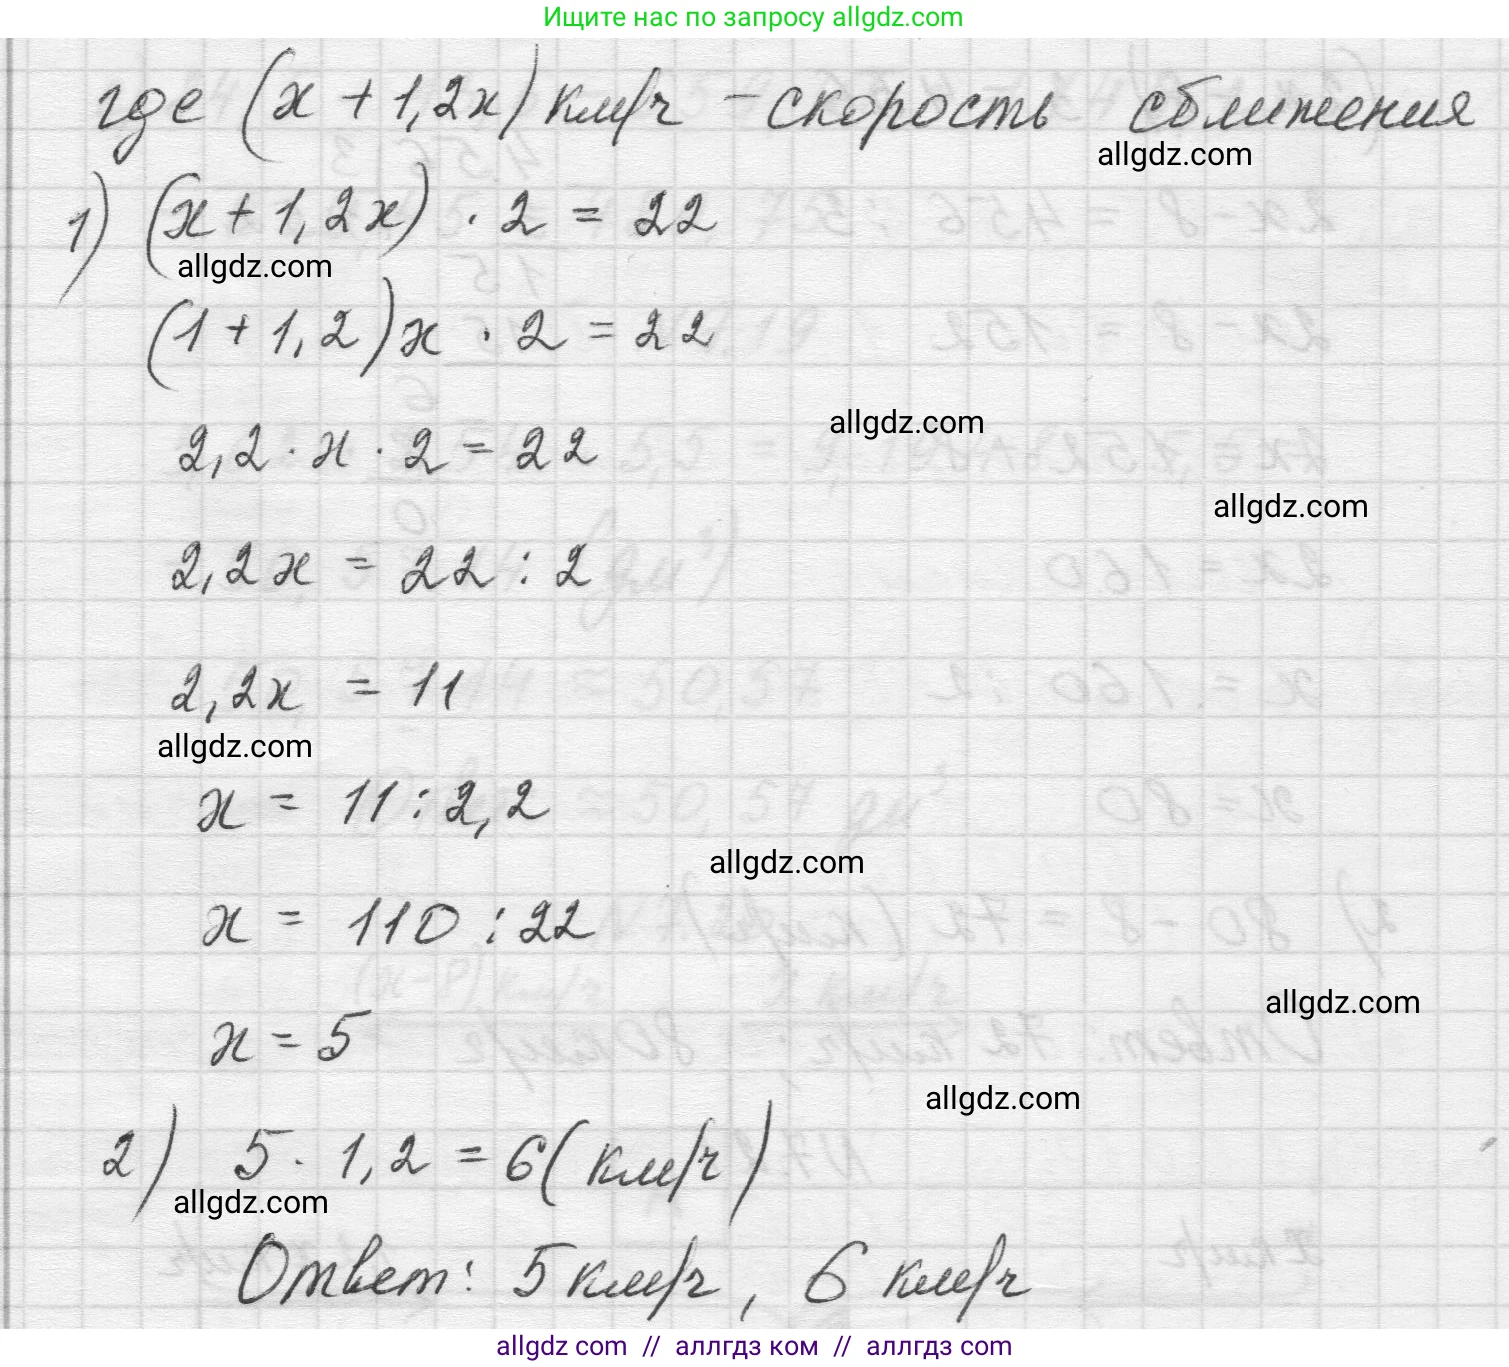 Ищите нас по запросу allgdz.com
где (x + 1,2x) км/ч - скорость сближения
allgdz.com
1) (x + 1,2x) · 2 = 22
allgdz.com
(1 + 1,2)x · 2 = 22
allgdz.com
2,2 · x · 2 = 22
allgdz.com
2,2x = 22 : 2
2,2x = 11
allgdz.com
x = 11 : 2,2
allgdz.com
x = 110 : 22
allgdz.com
x = 5
allgdz.com
2) 5 · 1,2 = 6 (км/ч)
allgdz.com
Ответ: 5 км/ч, 6 км/ч
allgdz com // аллгдз ком // аллгдз com